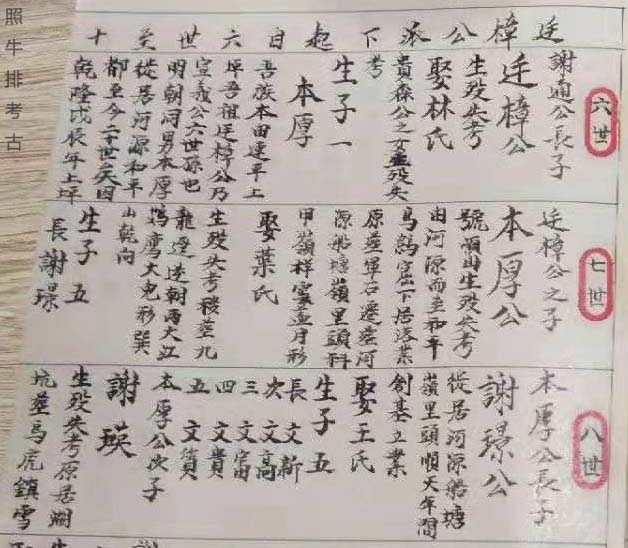 照牛排考古
廷樟公派下起自六世至十
六世
謝通公長子
廷樟公
生殁失考
娶林氏
貴森公之女生殁失
考
生子一
本厚
吾族本由連平上
坪吾祖廷樟公乃
宣義公六世孫也
明朝同男本厚
從居河源和平
都至今二十世矣因
乾隆戊辰年上坪
七世
廷樟公之子
本厚公
號順山生殁失考
由河源而至和平
烏鷓窩下居落業
原葬軍石遷葬河
源船塘嶺里頭科
甲嶺祥雲追月形
娶葉氏
生殁失考殁葬九
龍逕迭朝西大江
塢鷹大兔形巽
山乾向
生子五
長謝璟
八世
本厚公長子
謝璟公
從居河源船塘
嶺里頭順天年間
創基立業
娶王氏
生子五
長文斬
次文高
三文富
四文貴
五文質
本厚公次子
謝瑛
生殁失考原居澗
坑葬馬虎鎮雪